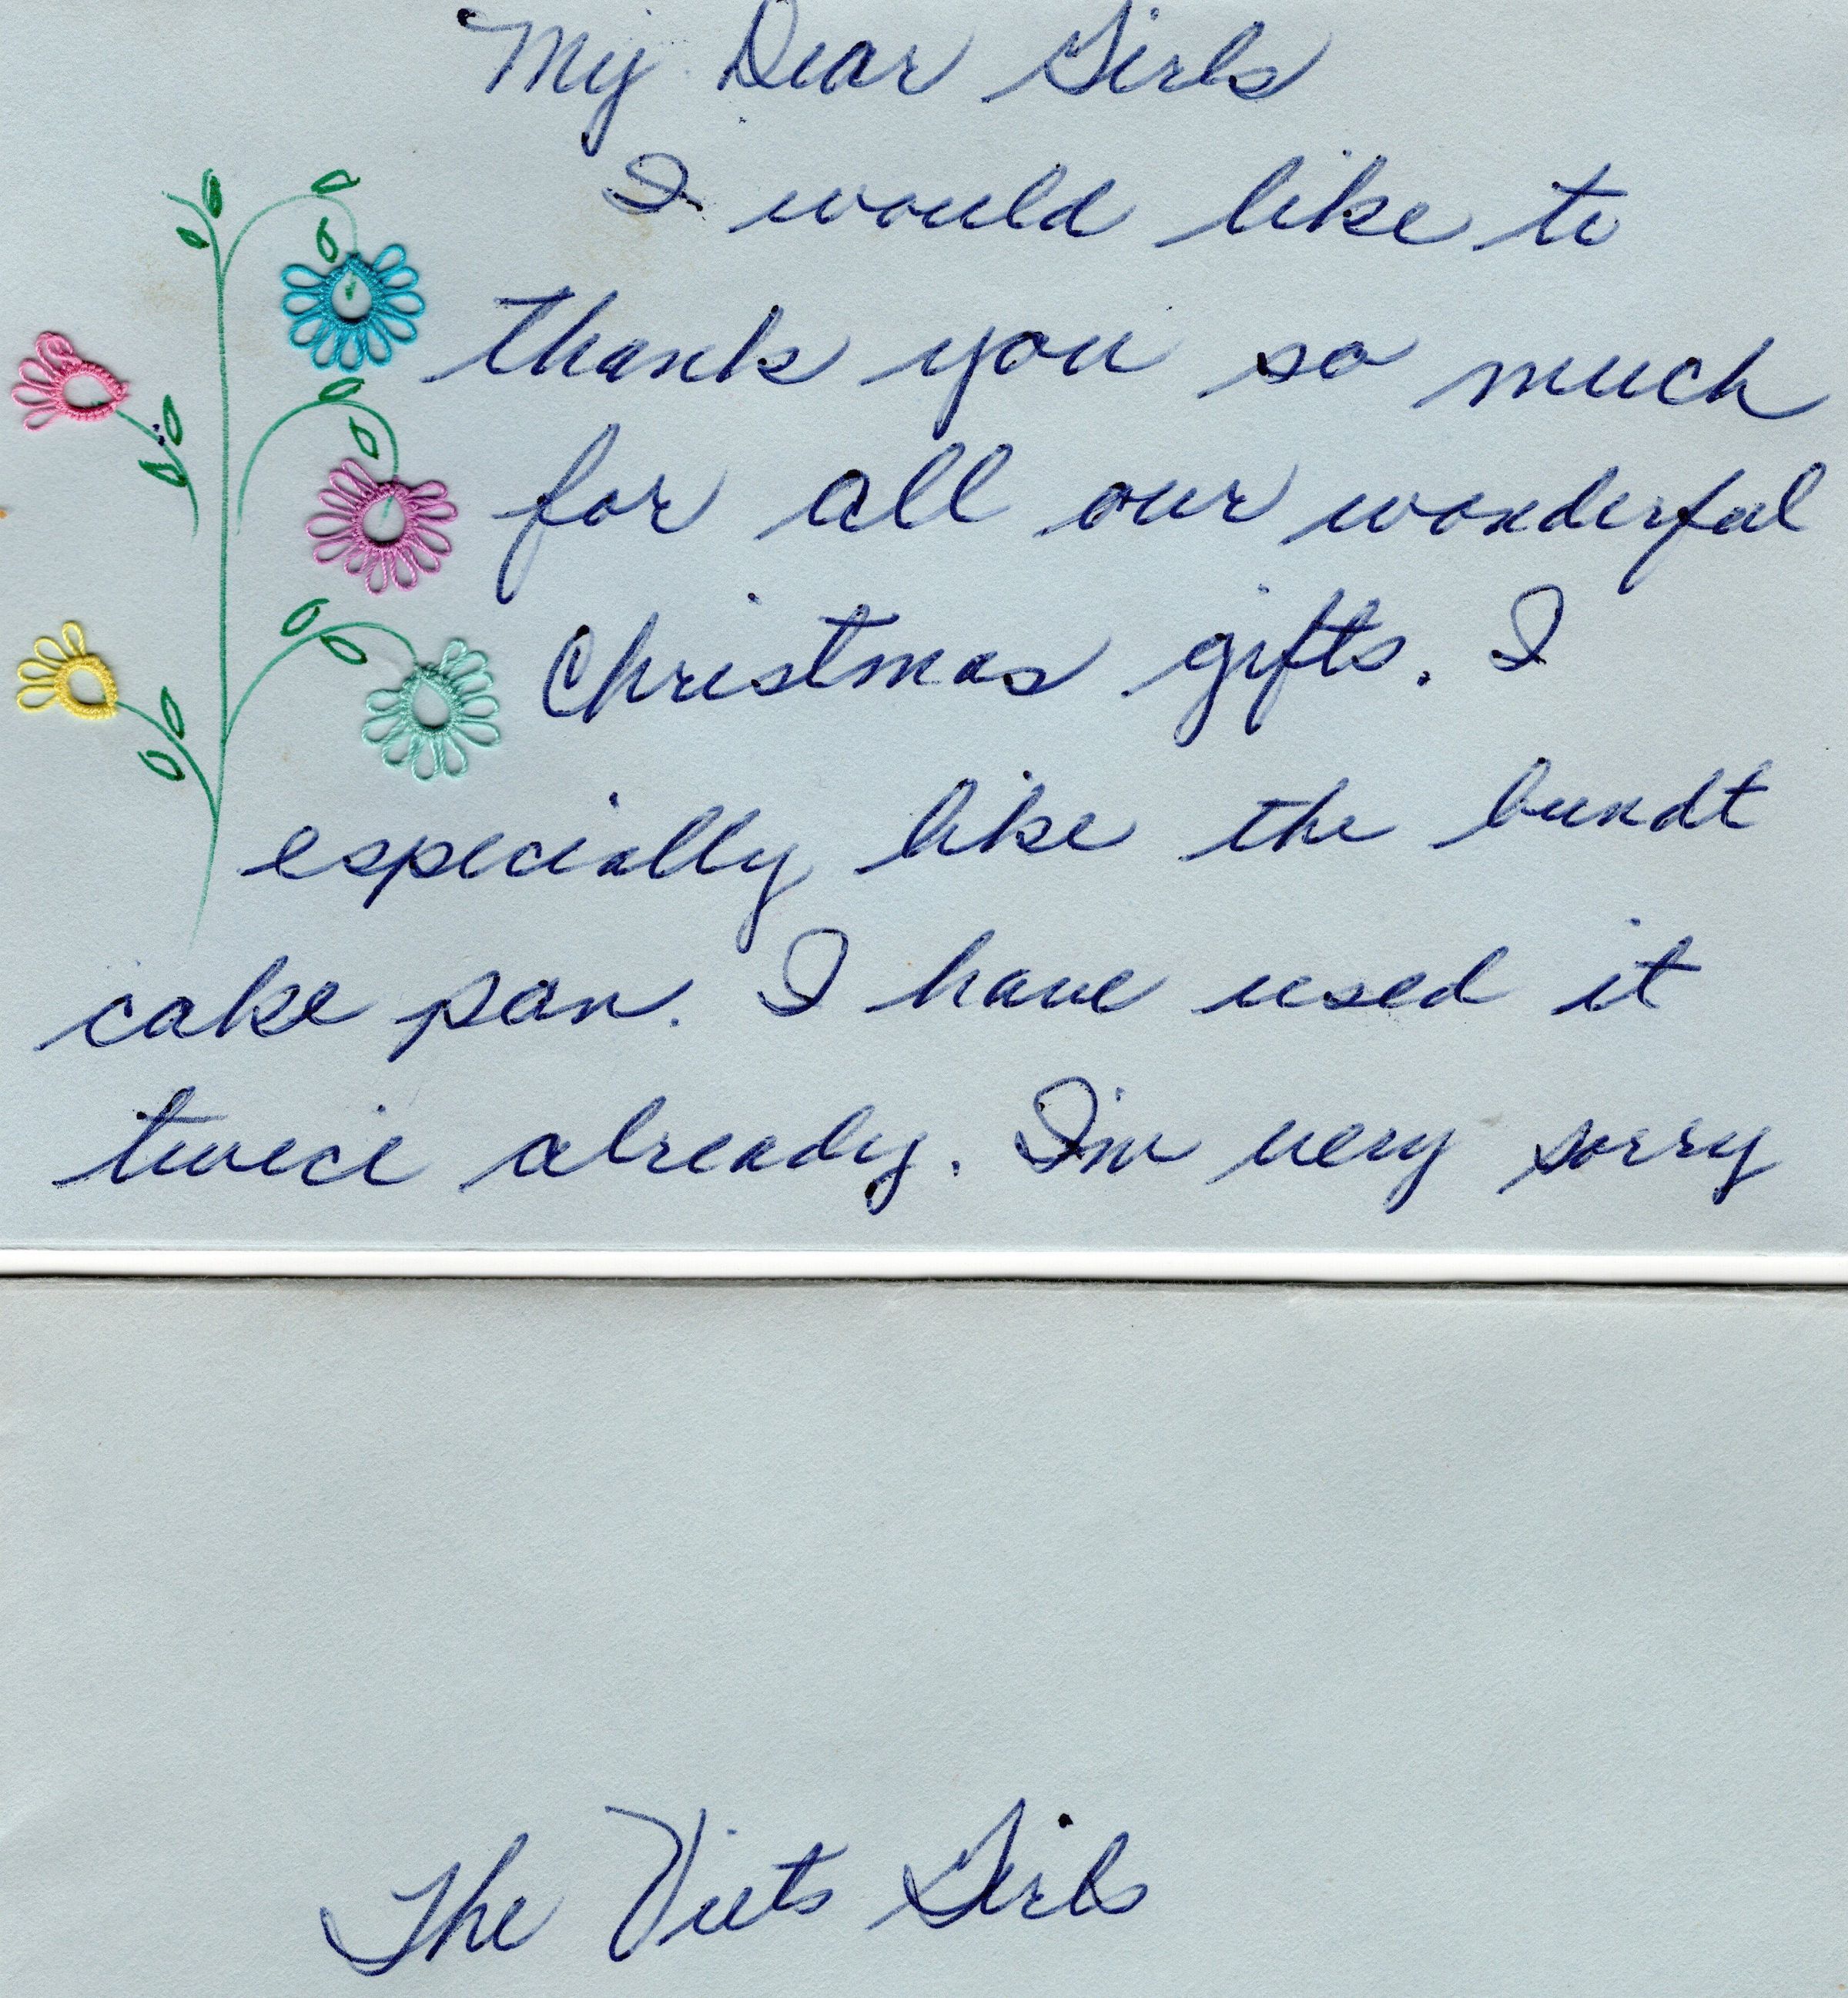 My Dear Girls
I would like to
thank you so much
for all our wonderful
Christmas gifts. I
especially like the bundt
cake pan. I have used it
twice already. I'm very sorry
The Viets Girls